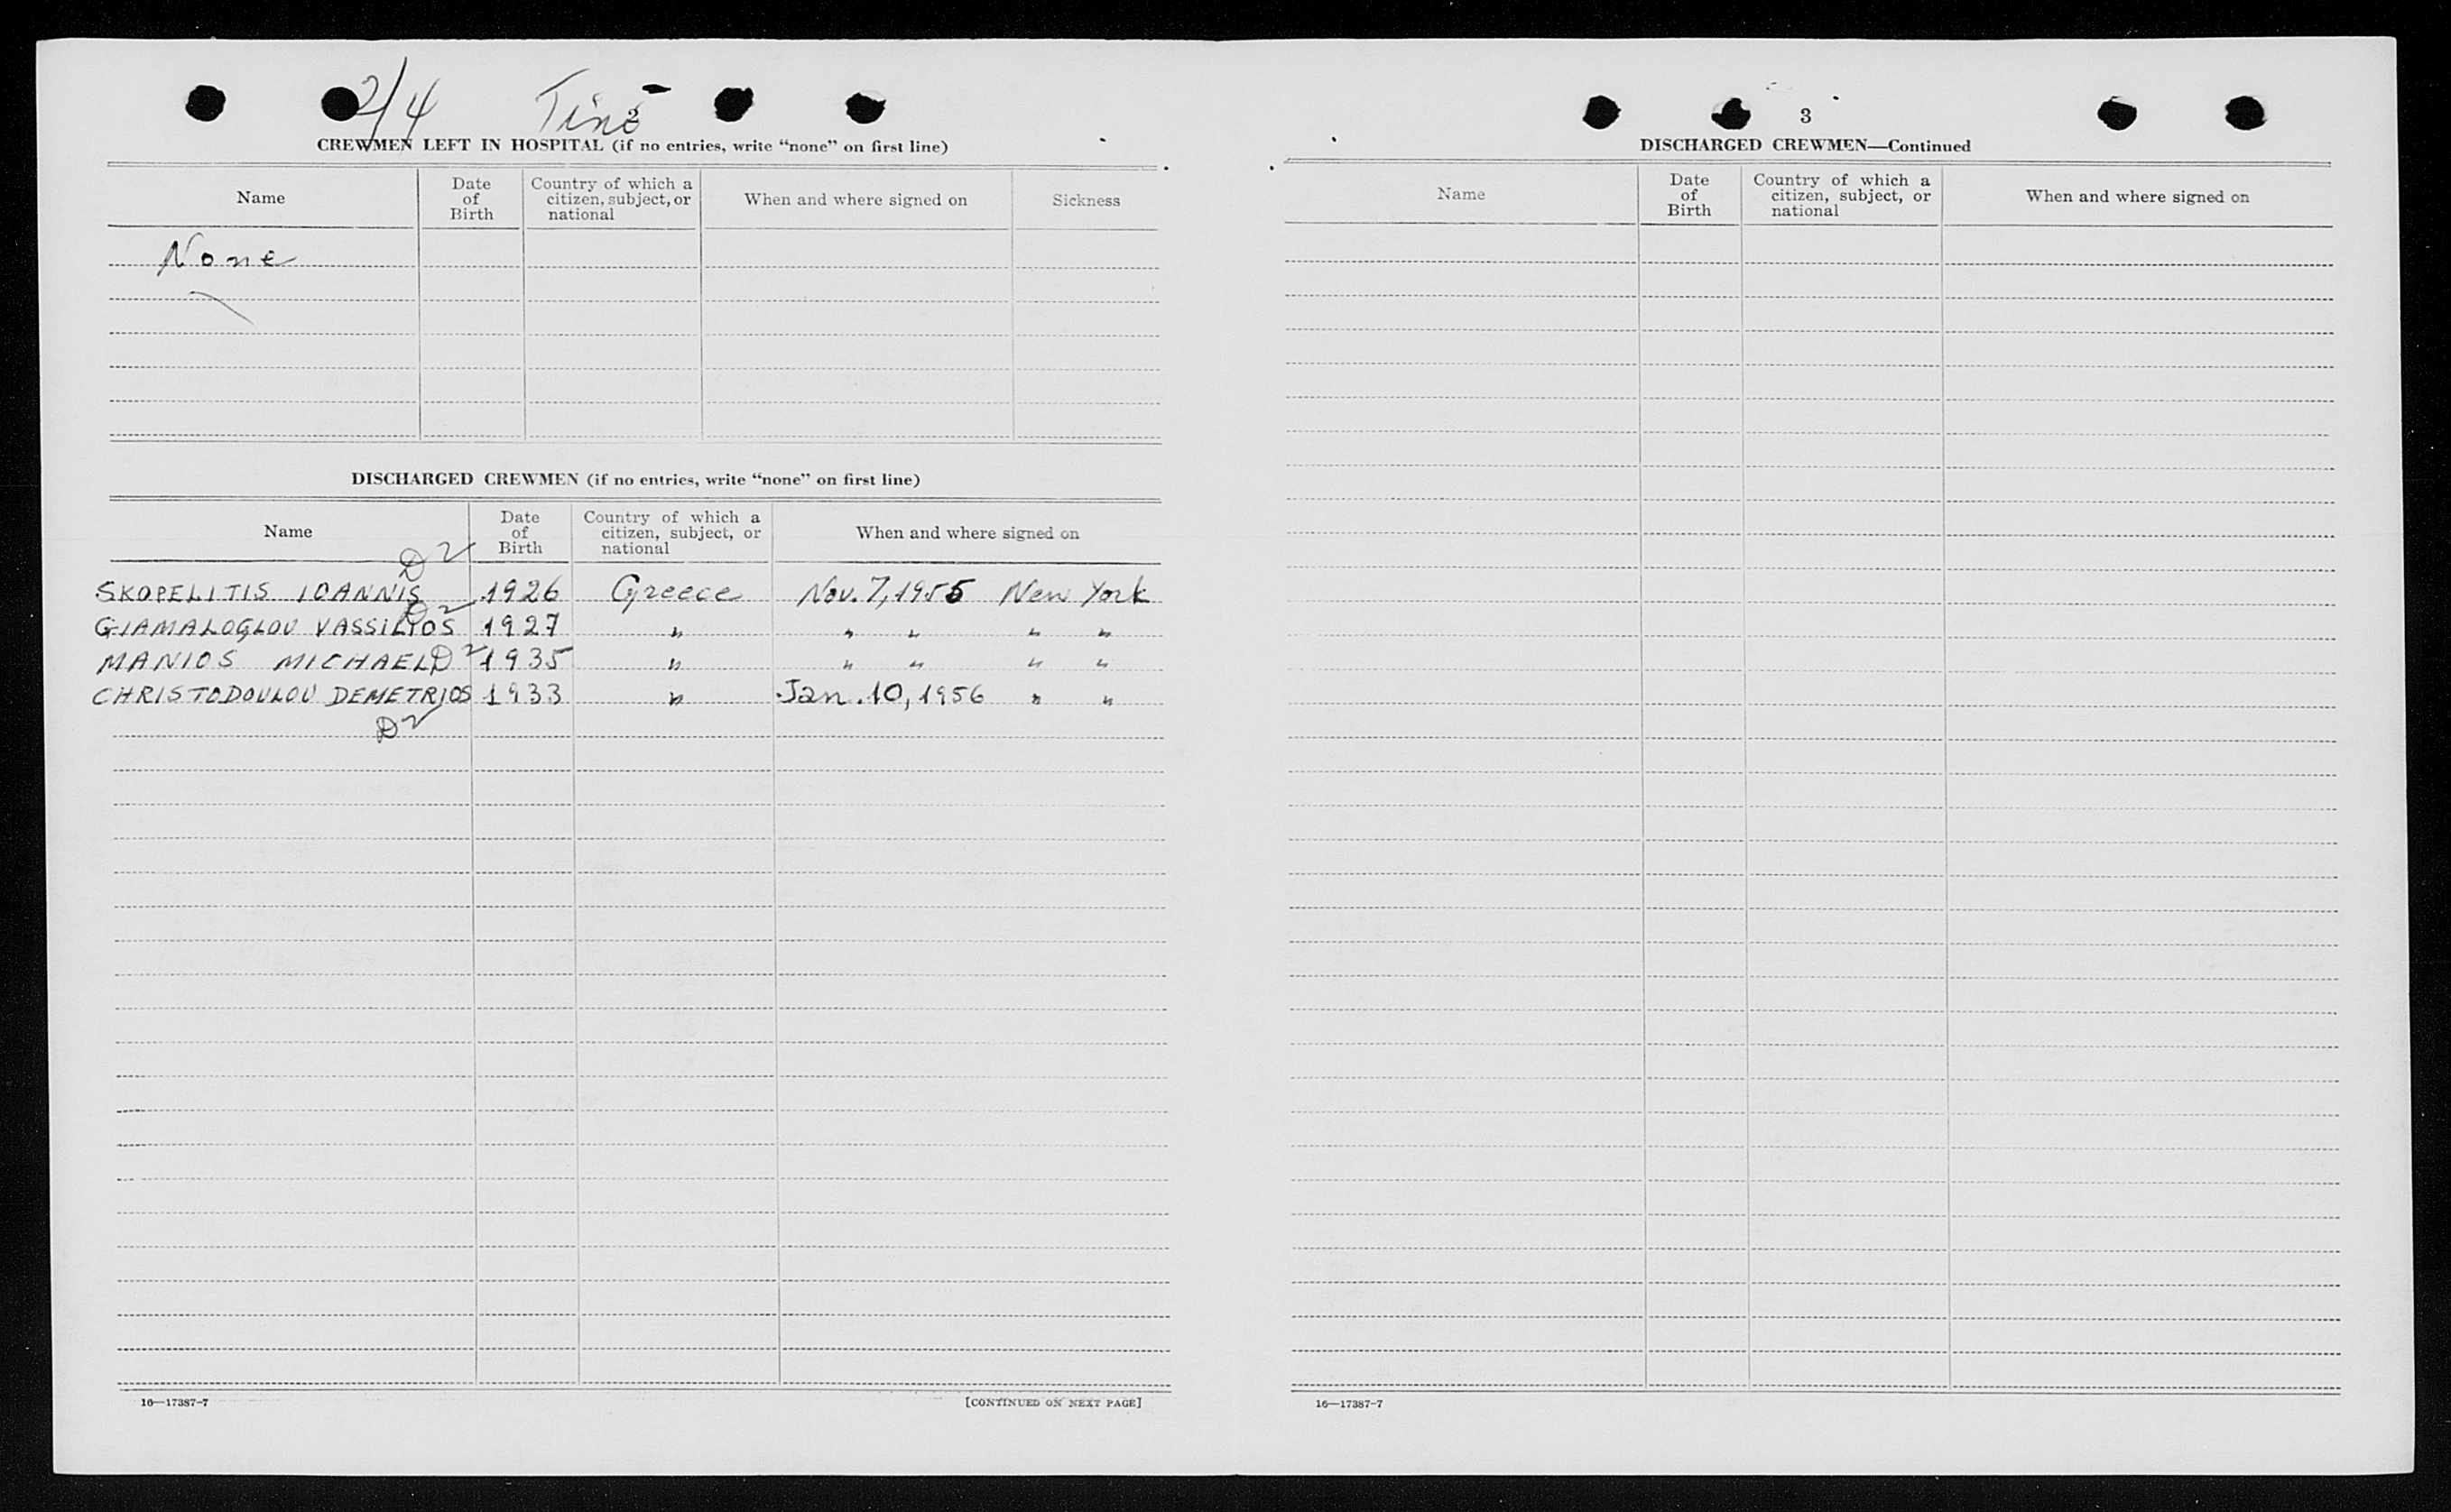 2/4 Tino
2
CREWMEN LEFT IN HOSPITAL (if no entries, write "none" on first line)
Name Date of Birth Country of which a citizen, subject, or national When and where signed on Sickness
None
DISCHARGED CREWMEN (if no entries, write "none" on first line)
Name Date of Birth Country of which a citizen, subject, or national When and where signed on
D2
SKOPELITIS IOANNIS 1926 Greece Nov. 7, 1955 New York
D2
GIAMALOGLOU VASSILIOS 1927 " " " " "
MANIOS MICHAEL D2 1935 " " " " "
CHRISTODOULOU DEMETRIOS 1933 " Jan. 10, 1956 " "
D2
16—17387-7 [CONTINUED ON NEXT PAGE]
3
DISCHARGED CREWMEN—Continued
Name Date of Birth Country of which a citizen, subject, or national When and where signed on
16—17387-7